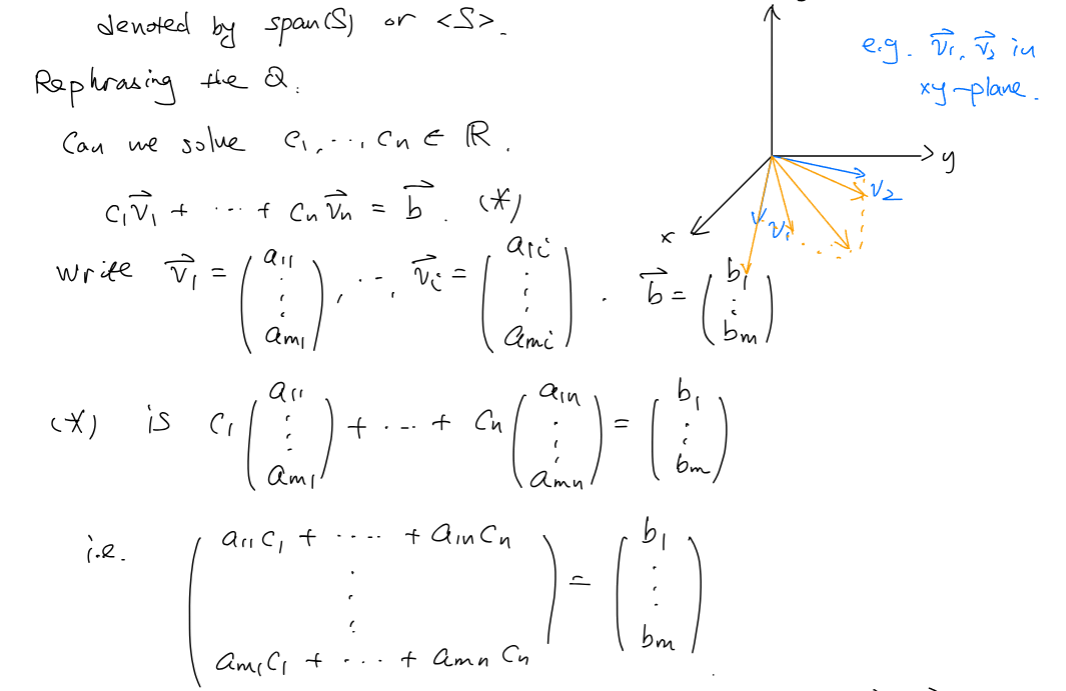 denoted by span(S) or <S>.
Rephrasing the Q.
Can we solve c₁, ..., cₙ ∈ ℝ.
c₁v⃗₁ + ... + cₙv⃗ₙ = b⃗. (*)
write v⃗₁ = (a₁₁ ⋮ aₘ₁), ..., v⃗ᵢ = (a₁ᵢ ⋮ aₘᵢ). b⃗ = (b₁ ⋮ bₘ)
(*) is c₁ (a₁₁ ⋮ aₘ₁) + ... + cₙ (a₁ₙ ⋮ aₘₙ) = (b₁ ⋮ bₘ)
i.e. (a₁₁c₁ + ... + a₁ₙcₙ ⋮ aₘ₁c₁ + ... + aₘₙcₙ) = (b₁ ⋮ bₘ)
e.g. v⃗₁, v⃗₂ in
xy-plane.
y
v₂
x
v₁